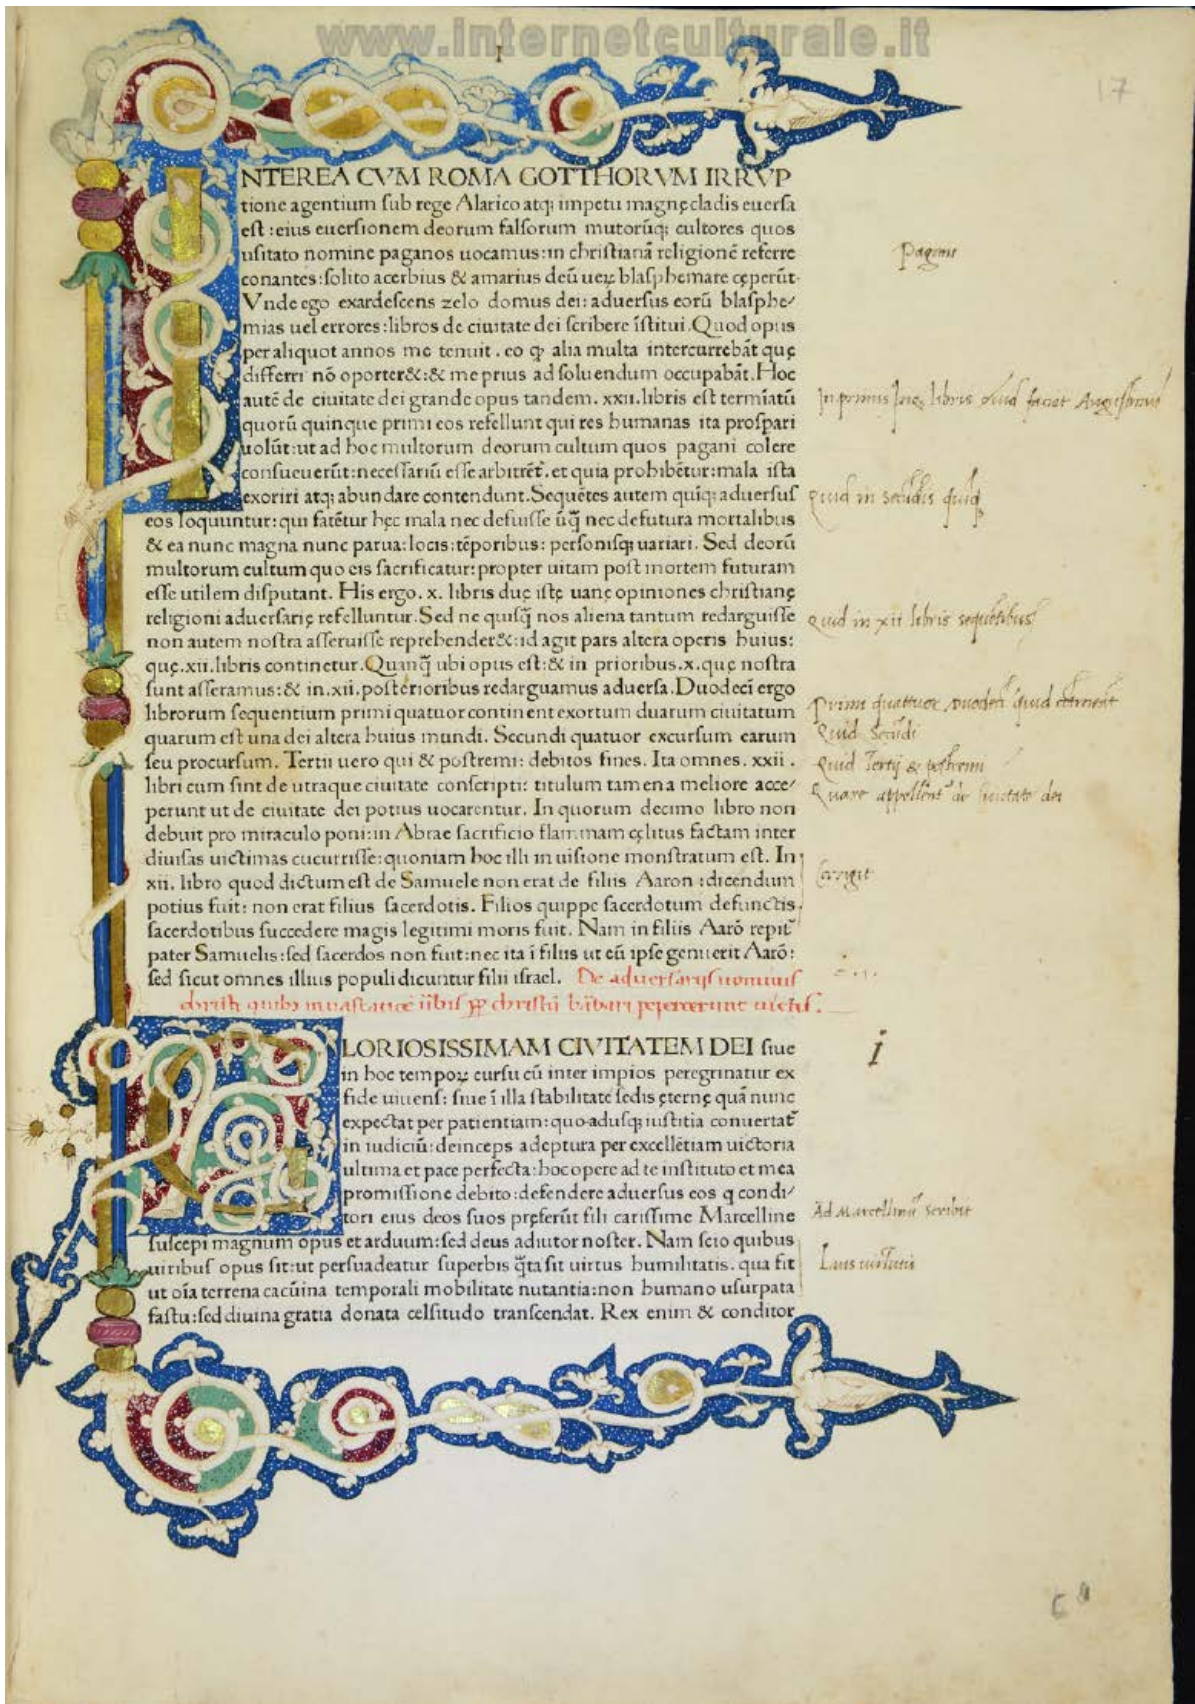 www.internetculturale.it
I
17
INTEREA CVM ROMA GOTTHORVM IRRVP
tione agentium sub rege Alarico atq; impetu magnę cladis euersa
est: eius euersionem deorum falsorum mutorūq; cultores quos
usitato nomine paganos uocamus: in christianā religionē referre
conantes: solito acerbius & amarius deū ueꝝ blasphemare cęperūt.
Vnde ego exardescens zelo domus dei: aduersus eorū blasphe/
mias uel errores: libros de ciuitate dei scribere īstitui. Quod opus
per aliquot annos me tenuit. eo ꝙ alia multa intercurrebāt quę
differri nō oporter&: & me prius ad soluendum occupabāt. Hoc
autē de ciuitate dei grande opus tandem .xxii. libris est termiatū
quorū quinque primi eos refellunt qui res humanas ita prospari
uolūt: ut ad hoc multorum deorum cultum quos pagani colere
consueuerūt: necessariū esse arbitrēt. et quia prohibētur: mala ista
exoriri atq; abundare contendunt. Sequētes autem quīq; aduersus
eos loquuntur: qui fatētur hęc mala nec defuisse ūq̄ nec defutura mortalibus
& ea nunc magna nunc parua: locis: tēporibus: personisq; uariari. Sed deorū
multorum cultum quo eis sacrificatur: propter uitam post mortem futuram
esse utilem disputant. His ergo .x. libris duę istę uanę opiniones christianę
religioni aduersarię refelluntur. Sed ne quisq̄ nos aliena tantum redarguisse
non autem nostra asseruisse reprehender&: id agit pars altera operis huius:
quę .xii. libris continetur. Quanq̄ ubi opus est: & in prioribus .x. quę nostra
sunt asseramus: & in .xii. posterioribus redarguamus aduersa. Duodeci ergo
librorum sequentium primi quatuor continent exortum duarum ciuitatum
quarum est una dei altera huius mundi. Secundi quatuor excursum earum
seu procursum. Tertii uero qui & postremi: debitos fines. Ita omnes .xxii.
libri cum sint de utraque ciuitate conscripti: titulum tamen a meliore acce/
perunt ut de ciuitate dei potius uocarentur. In quorum decimo libro non
debuit pro miraculo poni: in Abrae sacrificio flammam cęlitus factam inter
diuisas uictimas cucurrisse: quoniam hoc illi in uisione monstratum est. In
xii. libro quod dictum est de Samuele non erat de filiis Aaron: dicendum
potius fuit: non erat filius sacerdotis. Filios quippe sacerdotum defunctis
sacerdotibus succedere magis legitimi moris fuit. Nam in filiis Aarō repit̄
pater Samuelis: sed sacerdos non fuit: nec ita ī filiis ut eū ipse genuerit Aarō:
sed sicut omnes illius populi dicuntur filii israel. De aduersarijs nominis
christi quibꝫ in uastatiōe ūbis ꝓp christū barbari pepercerunt uictis.
GLORIOSISSIMAM CIVITATEM DEI siue
in hoc tempoꝝ cursu cū inter impios peregrinatur ex
fide uiuens: siue ī illa stabilitate sedis ęternę quā nunc
expectat per patientiam: quoadusq; iustitia conuertat̄
in iudiciū: deinceps adeptura per excellētiam uictoria
ultima et pace perfecta: hoc opere ad te instituto et mea
promissione debito: defendere aduersus eos q condi/
tori eius deos suos pręferūt fili carissime Marcelline
suscepi magnum opus et arduum: sed deus adiutor noster. Nam scio quibus
uiribus opus sit: ut persuadeatur superbis q̄ta sit uirtus humilitatis. qua fit
ut oīa terrena cacūina temporali mobilitate nutantia: non humano usurpata
fastu: sed diuina gratia donata celsitudo transcendat. Rex enim & conditor
Pagani
In primis libris quid faciat Augustinus
Quid in secūdis quīq
Quid in xii libris sequētibus
Primi quattuor quid
Quid secūdi
Quid Tertij & postremi
Quare appellent de ciuitate dei
Corrigit
i
Ad Marcellinū scribit
Laus uirtutis